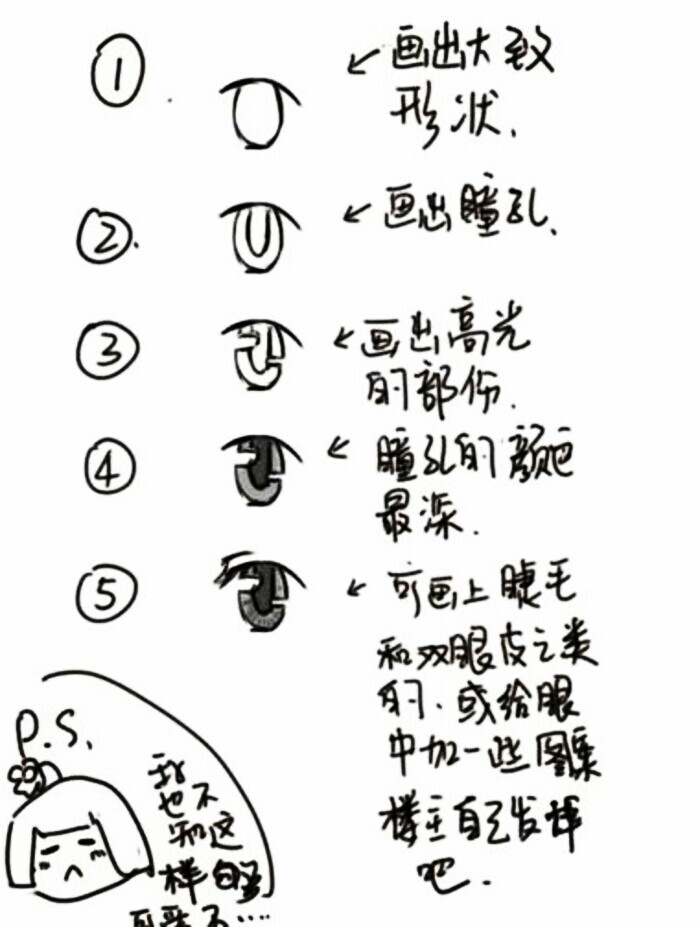 ①
画出大致
形状.
②.
画出瞳孔.
③
画出高光
的部份.
④
瞳孔的颜色
最深.
⑤
可画上睫毛
和双眼皮之类
的.或给眼
中加一些图案
楼主自己发挥
吧.
P.S.
我
也不
知这
样